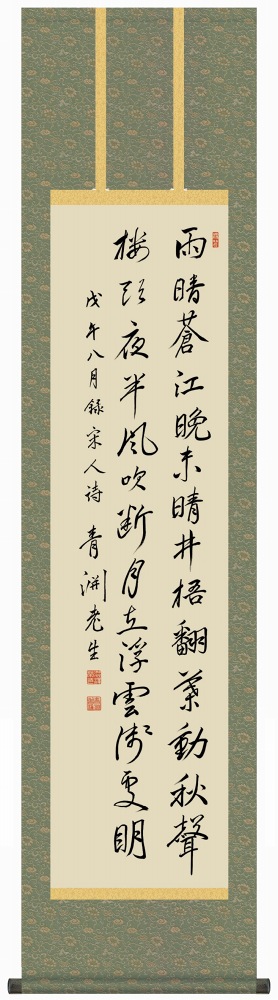 雨暗蒼江晚未晴井梧翻葉動秋聲
樓頭夜半風吹断月在浮雲浅處明
戊午八月録宋人詩 青淵老生